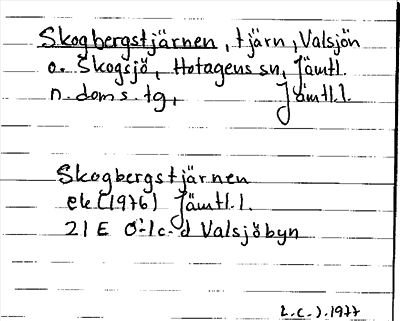 Skogbergstjärnen, tjärn, Valsjön
o. Skogsjö, Hotagens sn, Jämtl.
n. doms. tg, Jämtl.l.
Skogbergstjärnen
ek (1976) Jämtl.l.
21 E 0-1c-d Valsjöbyn
L.C.J. 1977